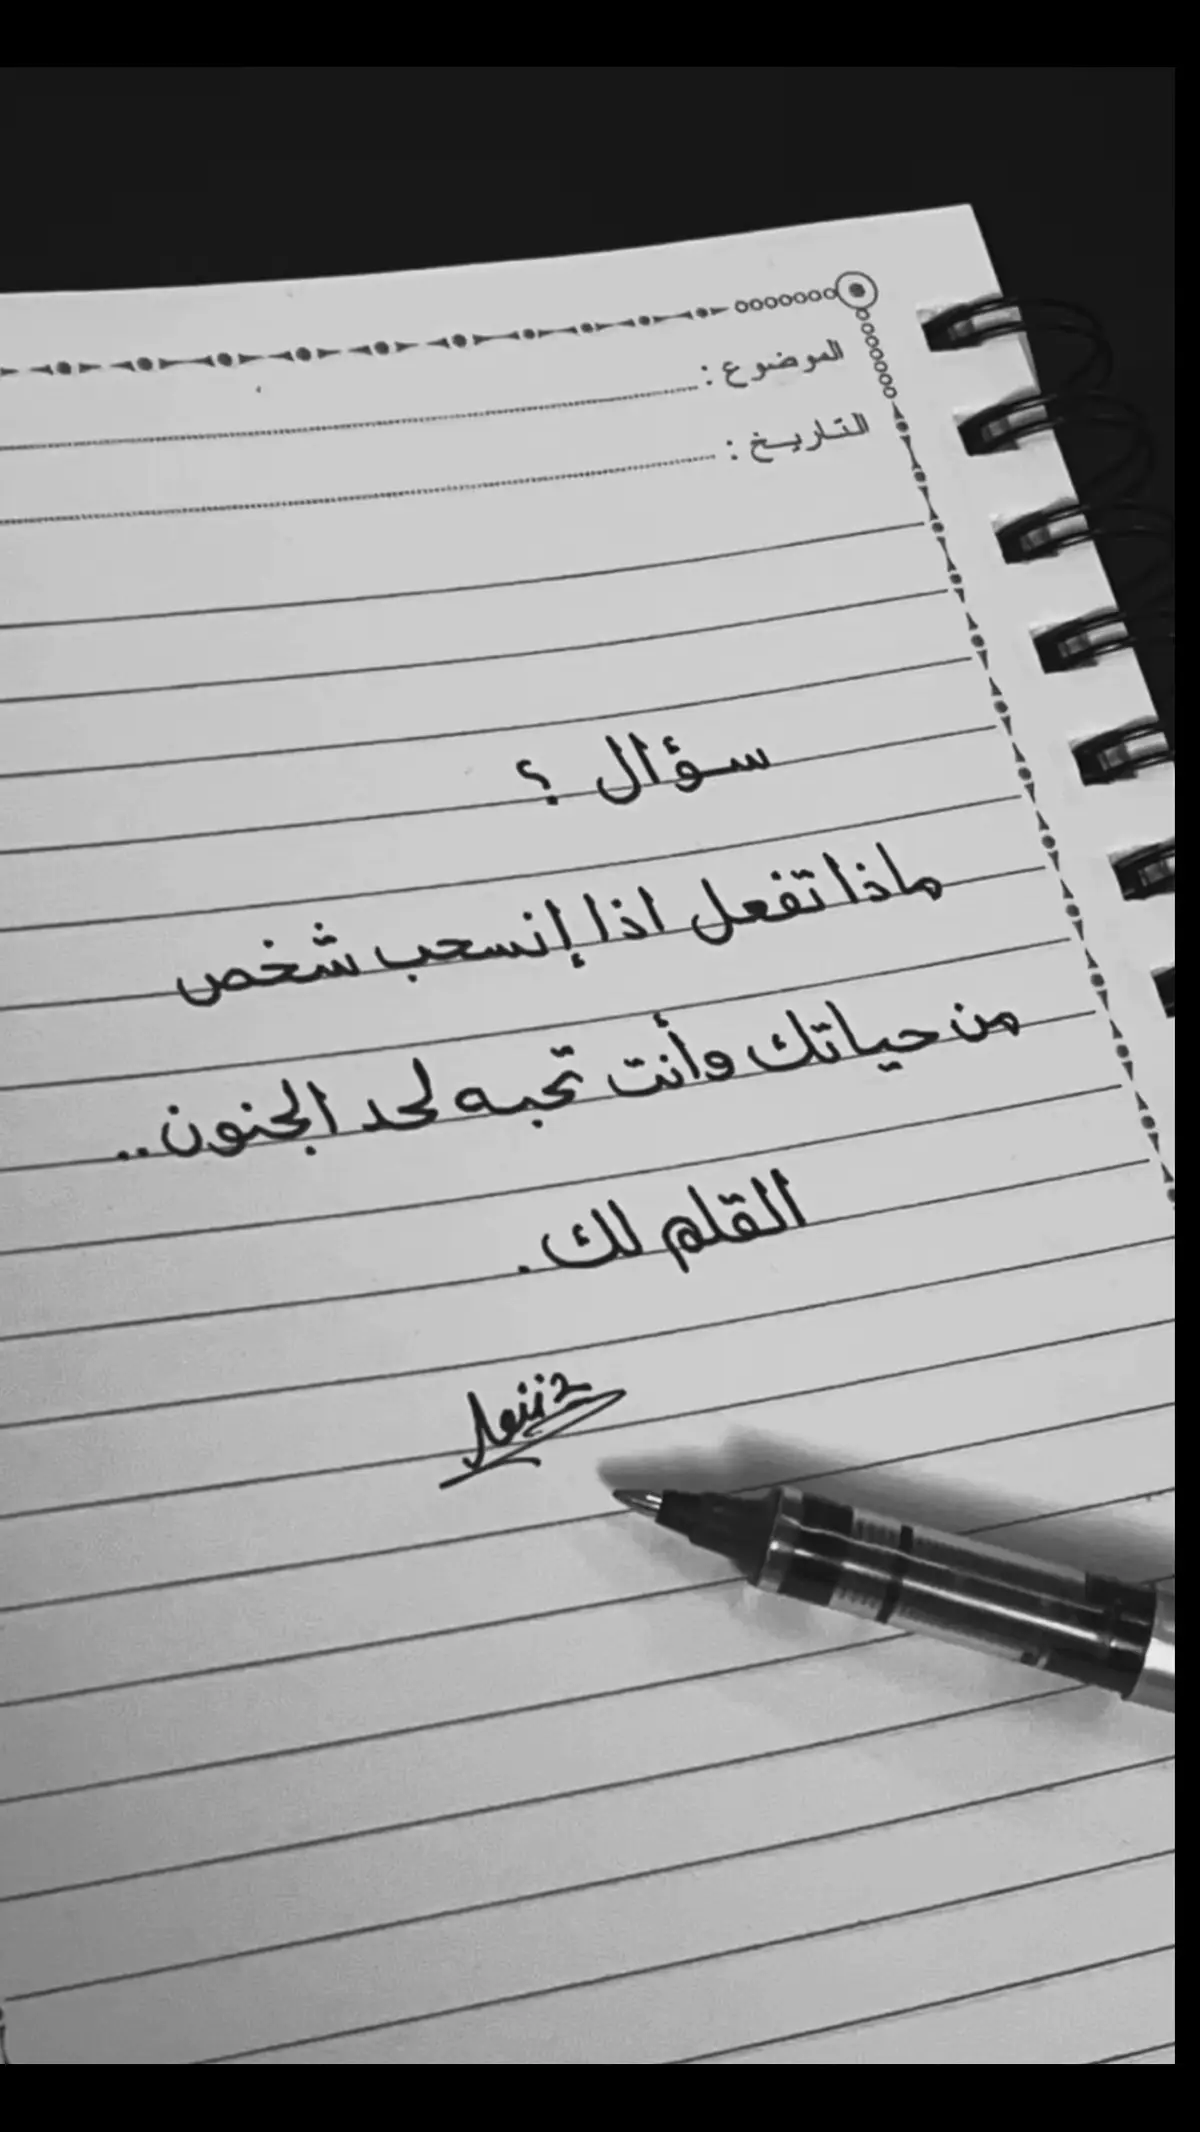 الموضوع :
التاريخ :
سؤال ؟
ماذا تفعل اذا إنسحب شخص
من حياتك وأنت تحبه لحد الجنون..
القلم لك .